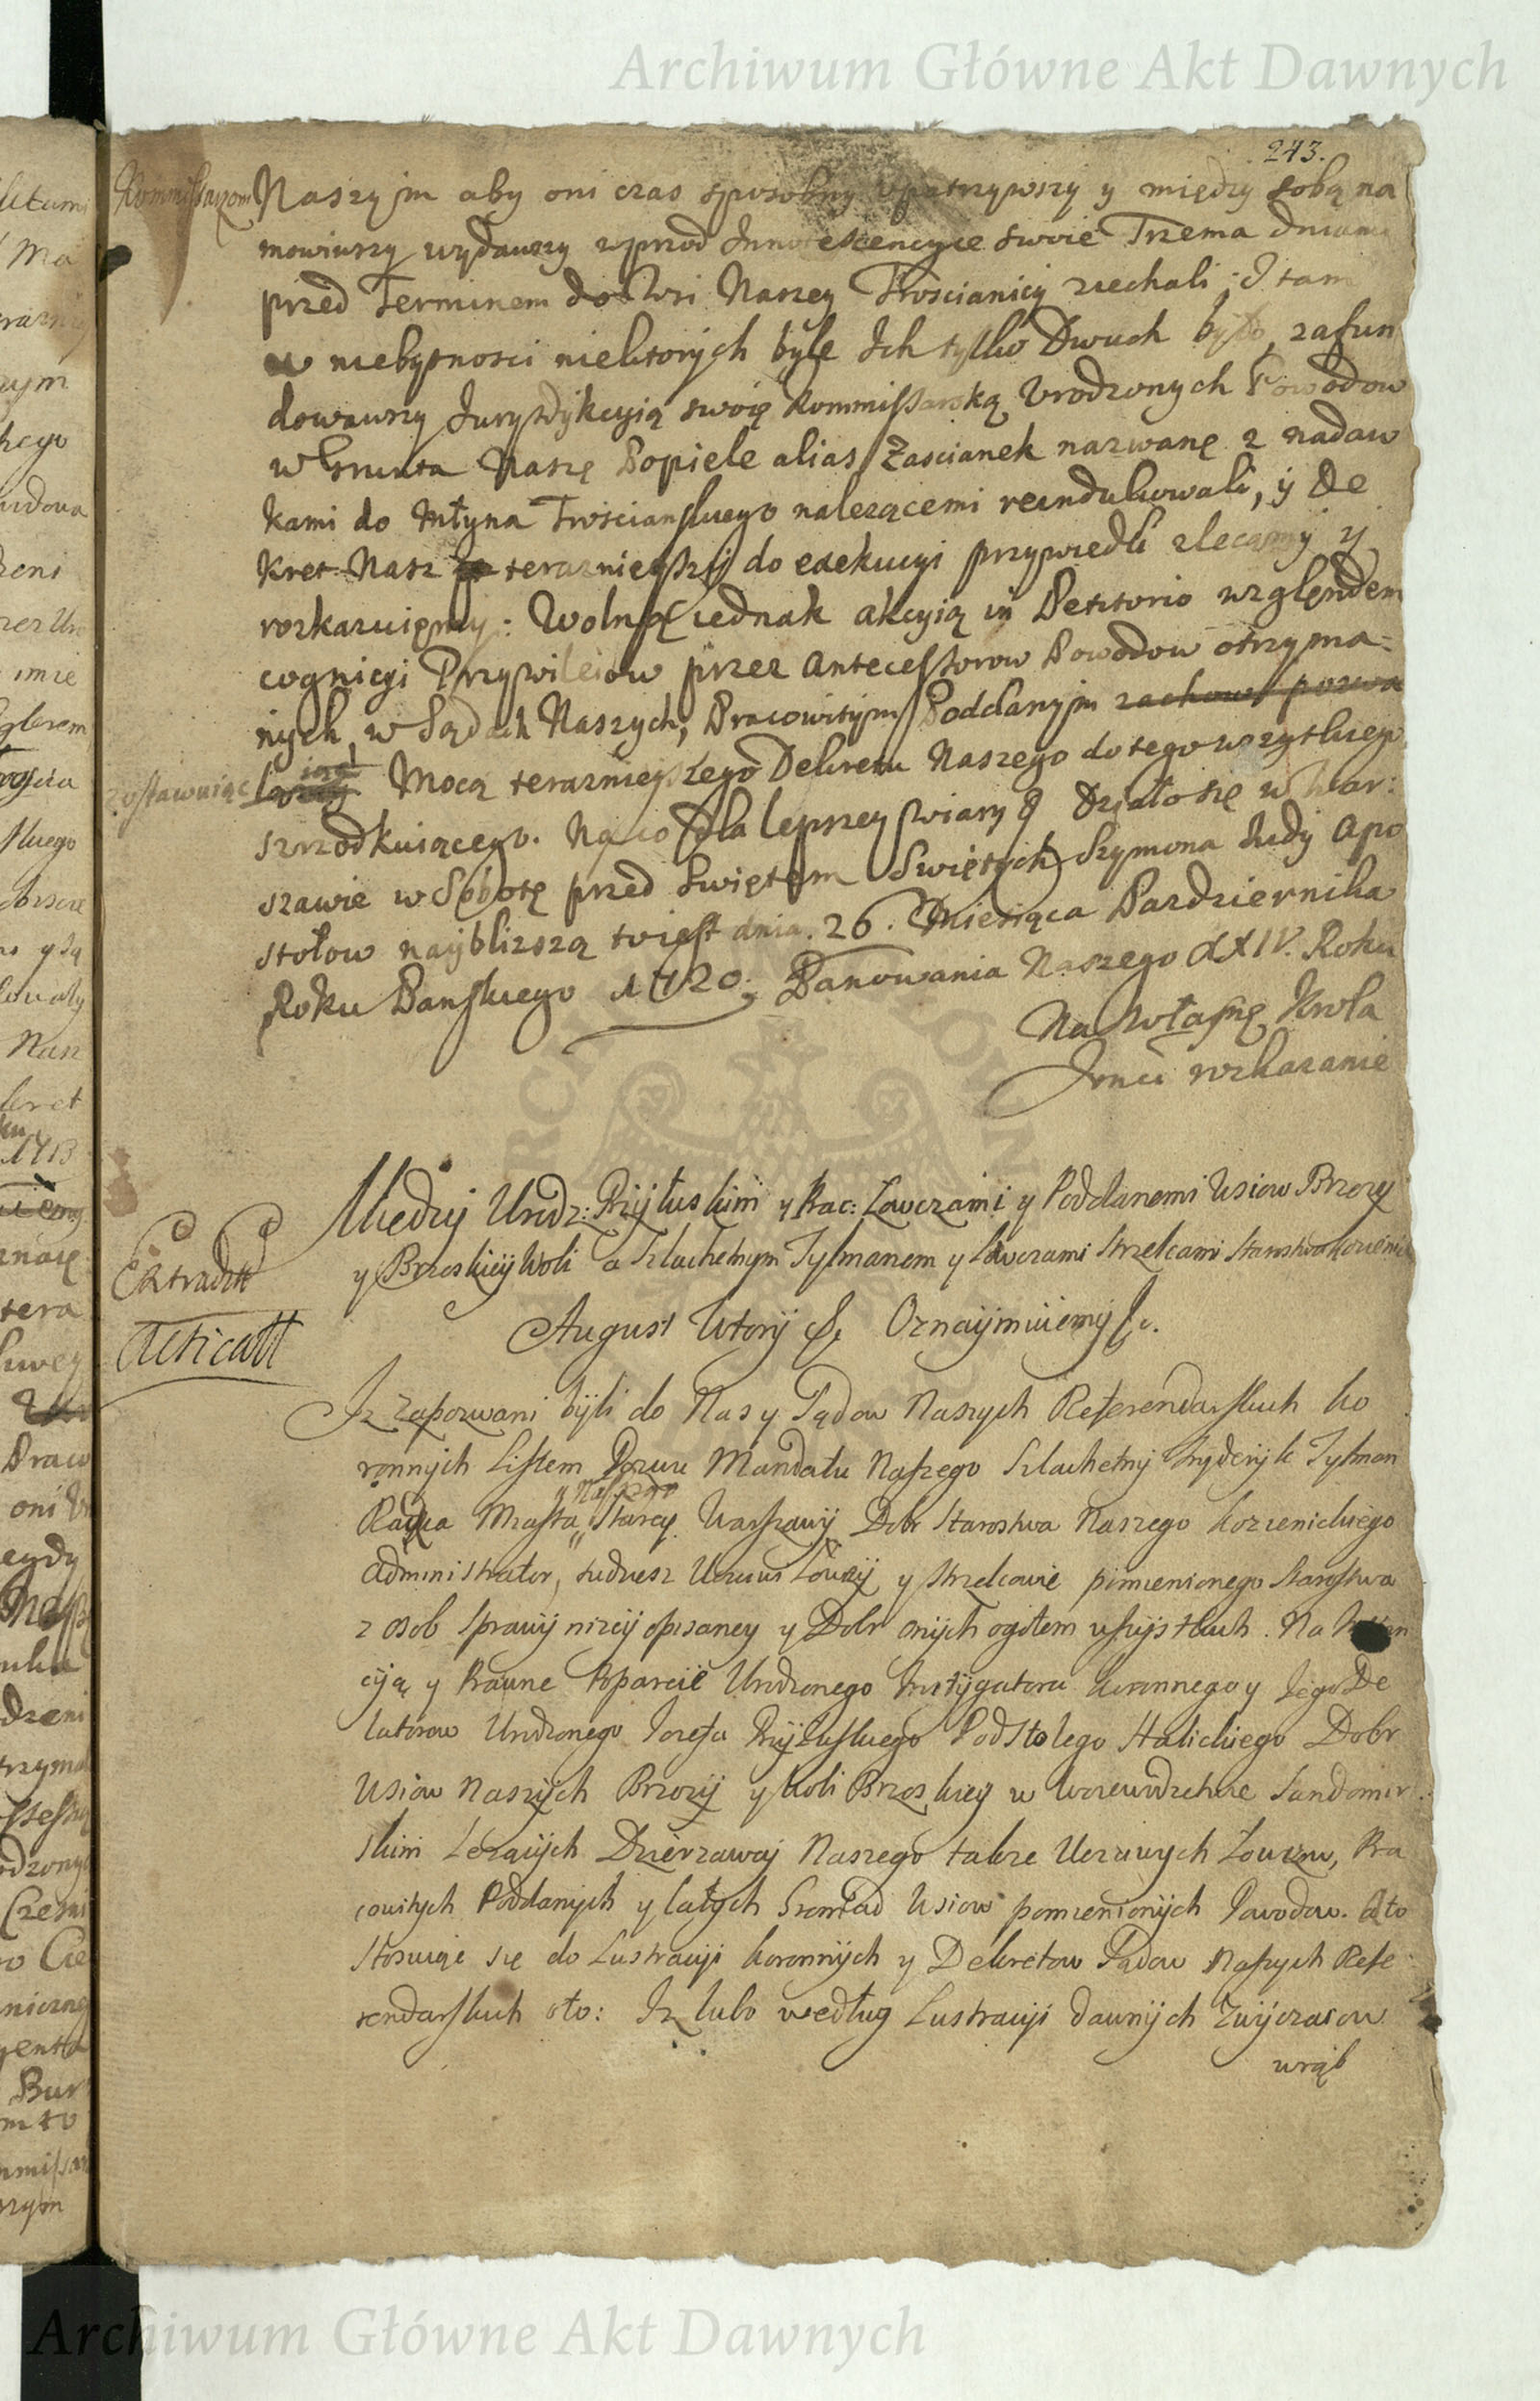 Archiwum Główne Akt Dawnych
243.
Kommissarzom Naszym aby oni czas sposobny upatrzywszy y między sobą na
mowiwszy wydawszy wprzod Innotescencyie swoie Trzema dniami
przed Terminem do Wsi Naszey Trościanicy ziechali; I tam
w niebytnosci niektorych byle Ich tylko Dwuch było, zafun
dowawszy Jurysdykcyią swoię Kommissarską Urodzonych Powodow
w Grunta Naszę Popiele alias Zascianek nazwanę z nadaw
kami do Młyna Trościanskiego nalezącemi reindukowali, y De
kret Nasz teraznieyszy do exekucyi przywiedli zlecamy y
rozkazuięmy: Wolną iednak akcyią in Petitorio względem
cognicyi Przywileiow przez Antecessorow Powodow otrzyma-
nych w Sądach Naszych, Pracowitym Poddanym zachow pozwa
zostawuiąc Mocą teraznieyszego Dekretu Naszego do tego wszytkiego
szrzodkuiącego. Na co dla lepszey wiary &. Działo się w War:
szawie w Sobotę przed Swiętem Swiętych Szymona Judy Apo
stołow nayblizszą to iest dnia 26. Miesiąca Pazdziernika
Roku Panskiego 1720. Panowania Naszego XXIV. Roku
Na własnę Krola
Jmci rozkazanie
Między Urodz: Przyłuskim y Prac: Łowczami y Poddanemi Wsiow Brzozy
y Brzoskiey Woli a Szlachetnym Tylmanem y Łowczami Strzelcami Starostwa Kozieni
Extradtt
Arricatt
August Wtory &. Oznaymuiemy &.
Iz zapozwani byli do Nas y Sądow Naszych Referendarskich Ko
ronnych Listem Pozwu Mandatu Naszego Szlachetny Fryderyk Tylman
Radca Miasta Naszego Starey Warszawy Dobr Starostwa Naszego Kozienickiego
Administrator, tudziesz Uczciwi Łowczy y Strzelcowie pomienionego Starostwa
z osob sprawy nizey opisaney y Dobr onych ogołem wszystkich. Na Instan
cyją y Prawne Poparcie Urodzonego Instygatora Koronnego y Jego De
latorow Urodzonego Jozefa Przyłuskiego Podstolego Halickiego Dobr
Wsiow Naszych Brzozy y Woli Brzoskiey w Woiewodztwie Sandomir
skim Lezących Dzierzawcy Naszego takze Uczciwych Łowczow, Pra
cowitych Poddanych y całych Gromad Wsiow pomienionych Powodow. A to
stosuiąc się do Lustracyi Koronnych y Dekretow Sądow Naszych Refe
rendarskich oto: Iz lubo według Lustracyi dawnych Zwyczaiow
wrąb
Archiwum Główne Akt Dawnych